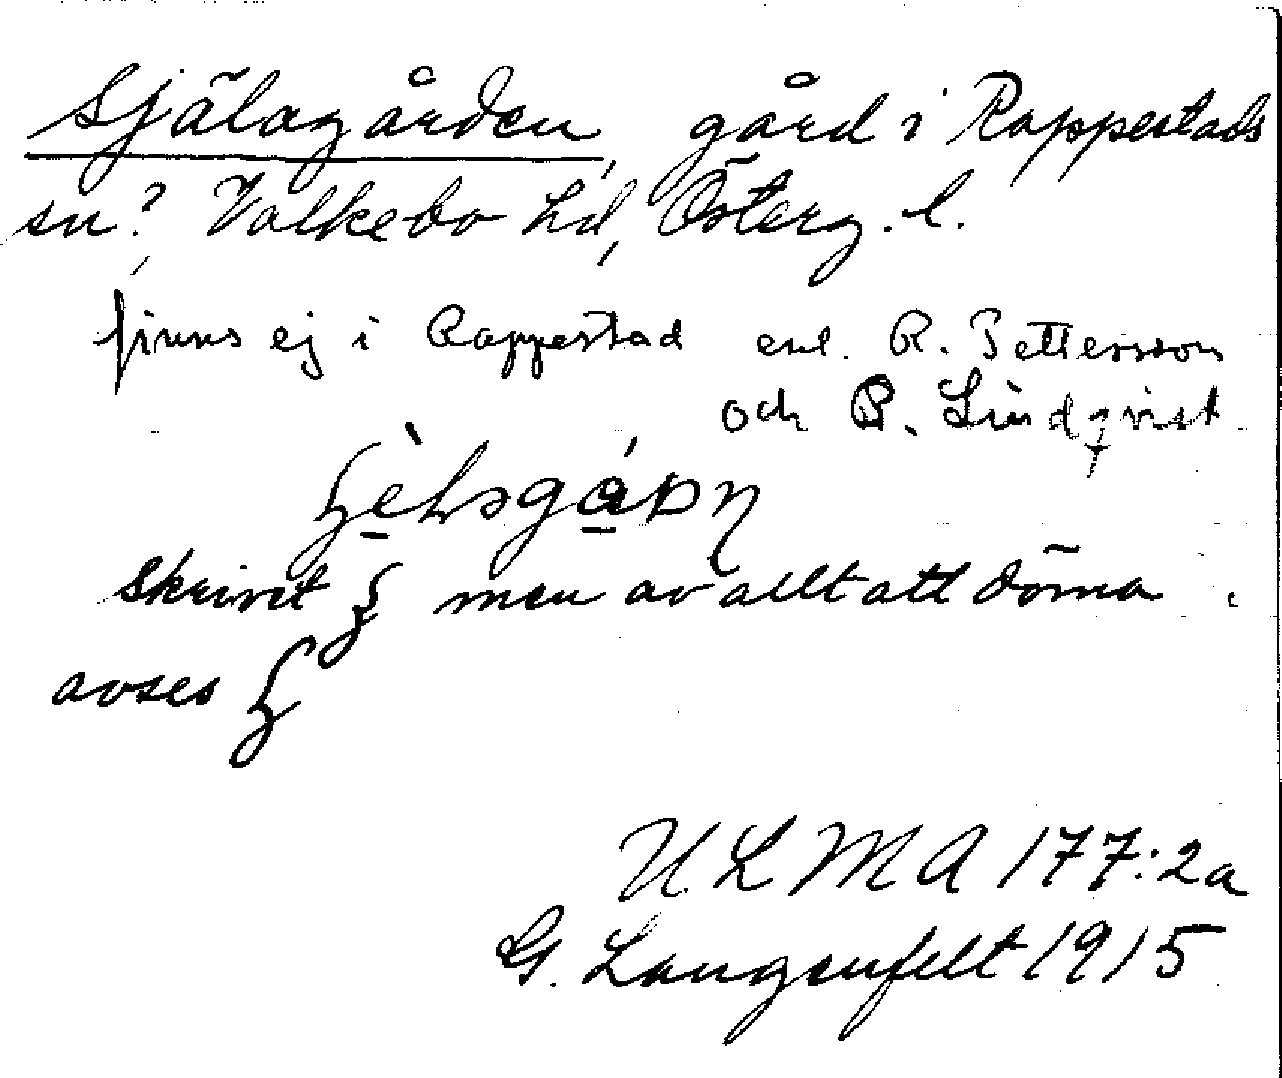 Själagården, gård i Rappestads
sn? Valkebo hd, Österg. l.
finns ej i Rappestad enl. R. Pettersson
och P. Lindqvist
skrivit men av allt att döma
avses
ULMA 177:2a
G. Langenfelt 1915